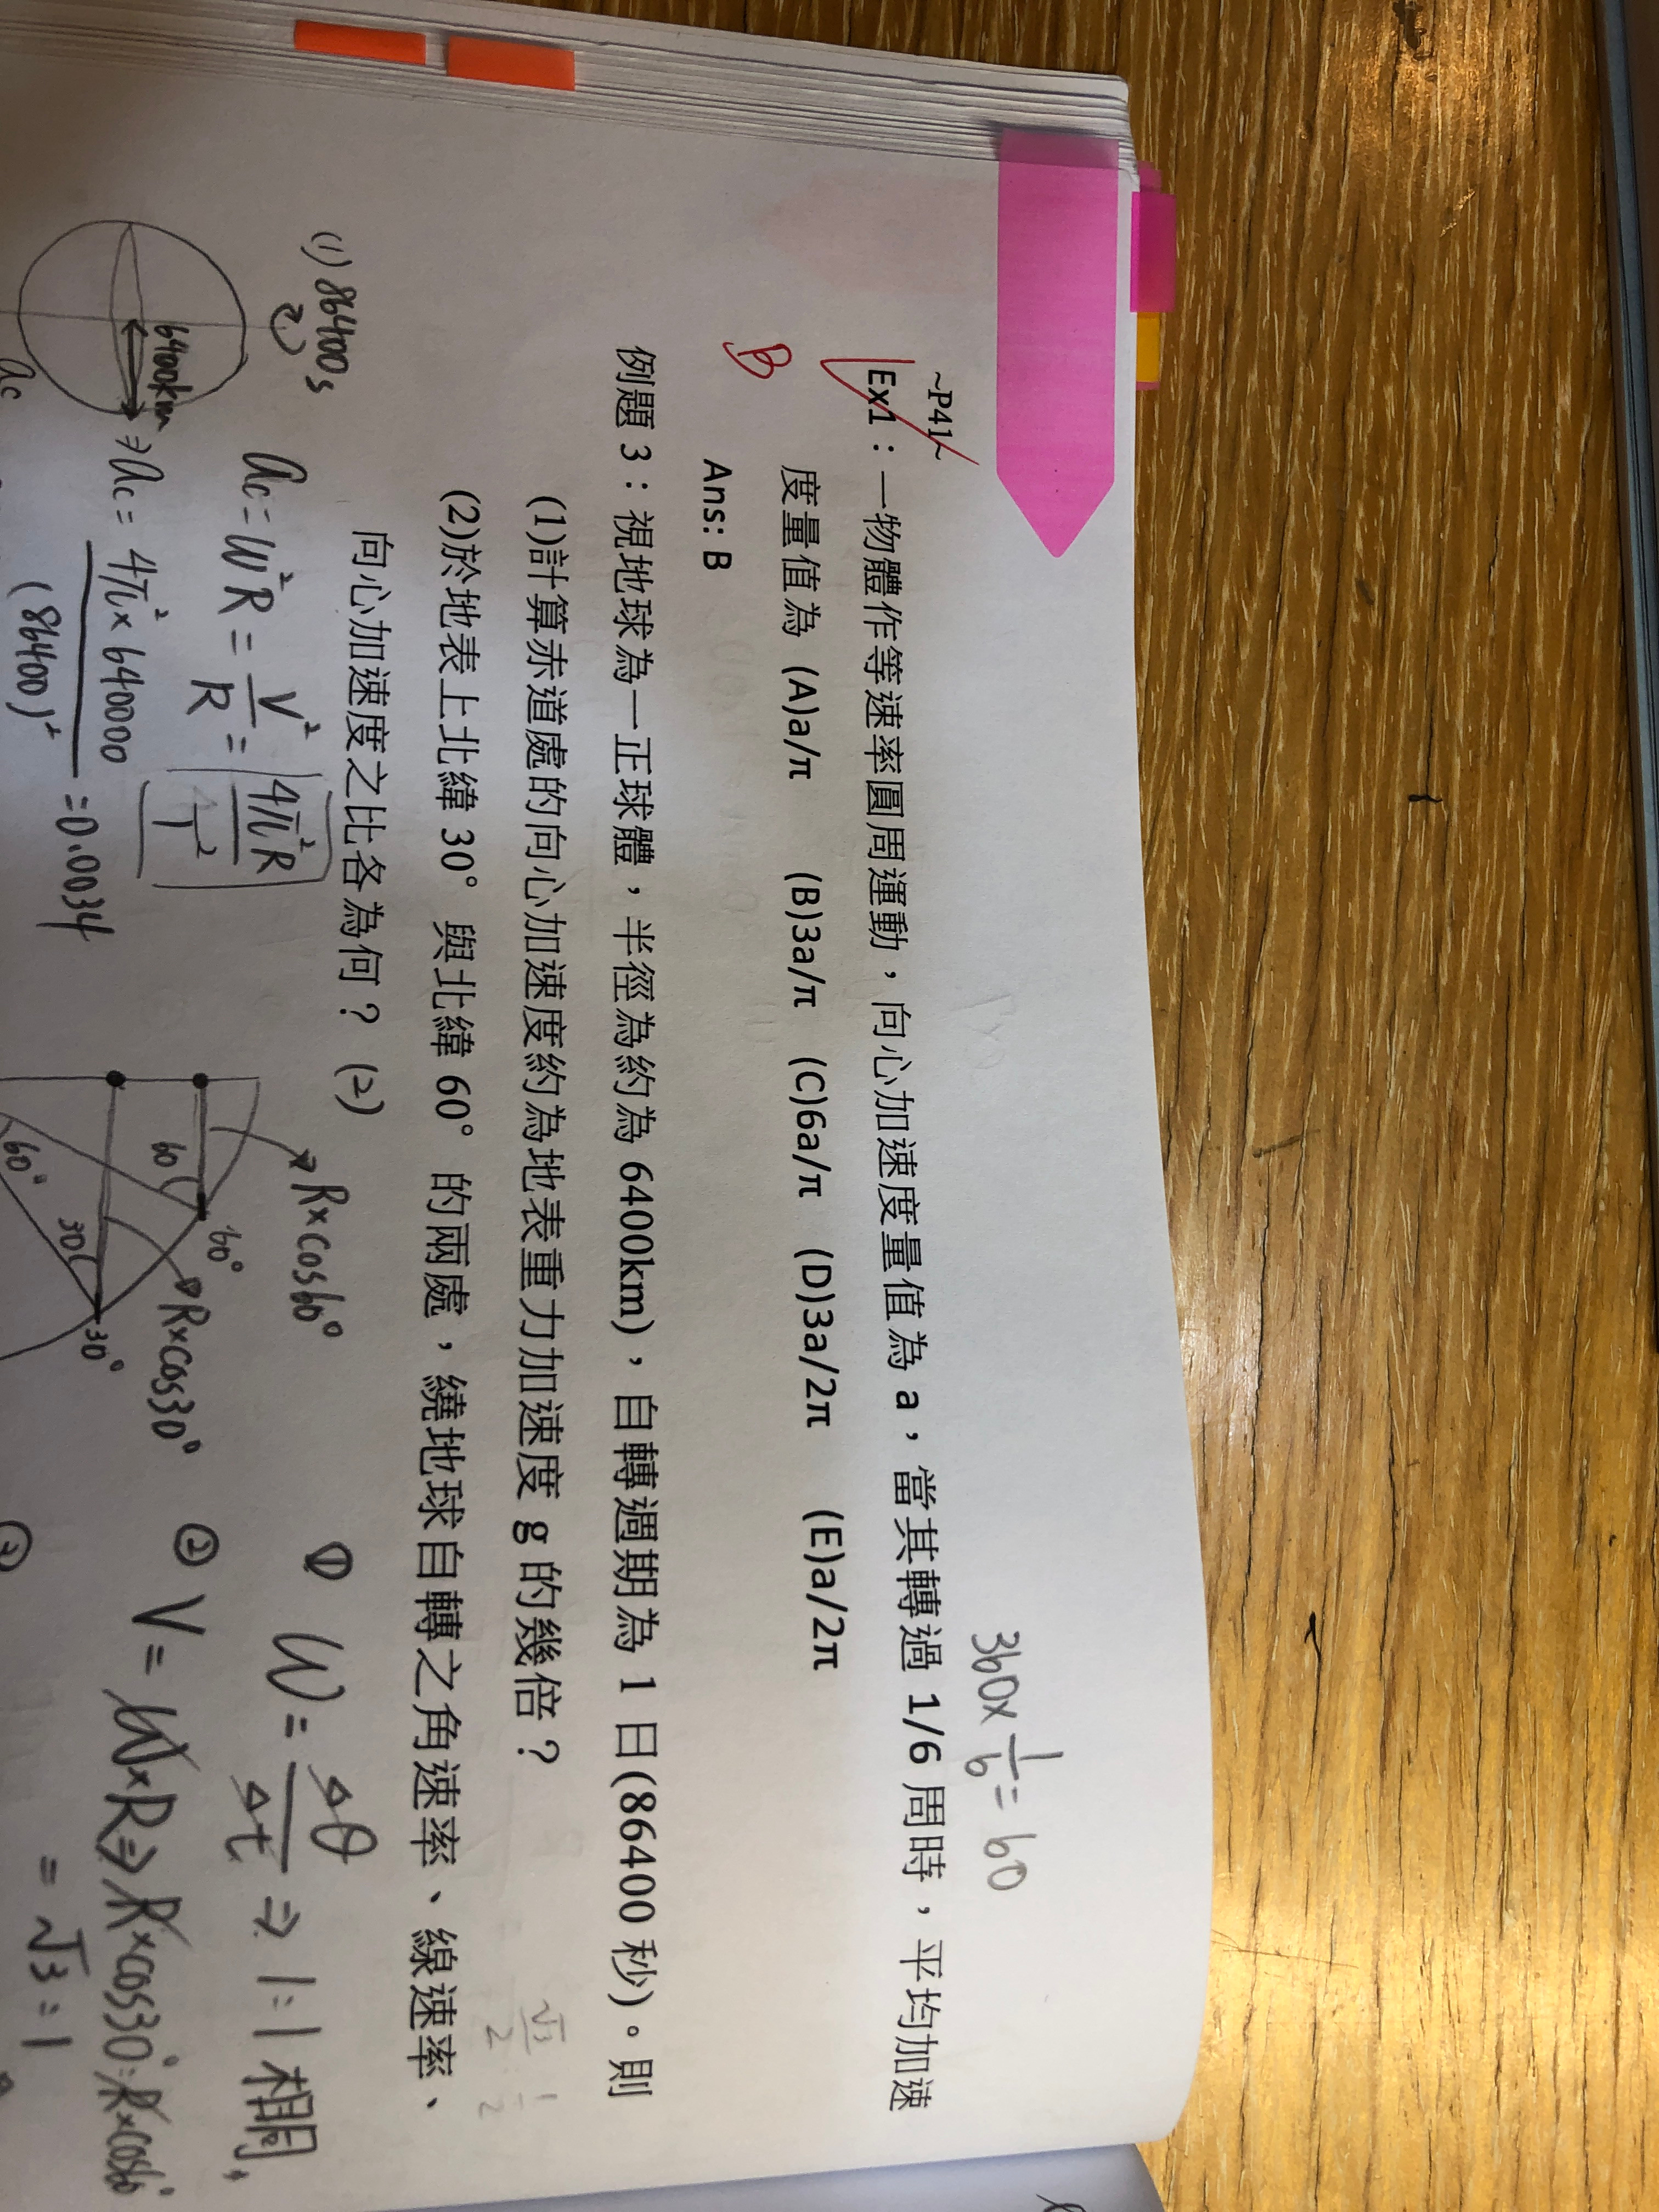 ~P41~
360×1/6=60
Ex1：一物體作等速率圓周運動，向心加速度量值為 a，當其轉過 1/6 周時，平均加速
度量值為 (A)a/π (B)3a/π (C)6a/π (D)3a/2π (E)a/2π
B
Ans: B
例題 3：視地球為一正球體，半徑為約為 6400km)，自轉週期為 1 日(86400 秒)。則
(1)計算赤道處的向心加速度約為地表重力加速度 g 的幾倍？
√3/2 : 1/2
(2)於地表上北緯 30° 與北緯 60° 的兩處，繞地球自轉之角速率、線速率、
向心加速度之比各為何？ (2)
(1) 86400s
ac=ω²R=V²/R=4π²R/T²
6400km
⇒ac=4π²×640000/(86400)²=0.0034
ac
R×cos60°
60°
60
R×cos30°
30°
30
60°
① ω=Δθ/Δt ⇒ 1:1 相同
② V=ω×R⇒R×cos30°:R×cos60°
=√3:1
③